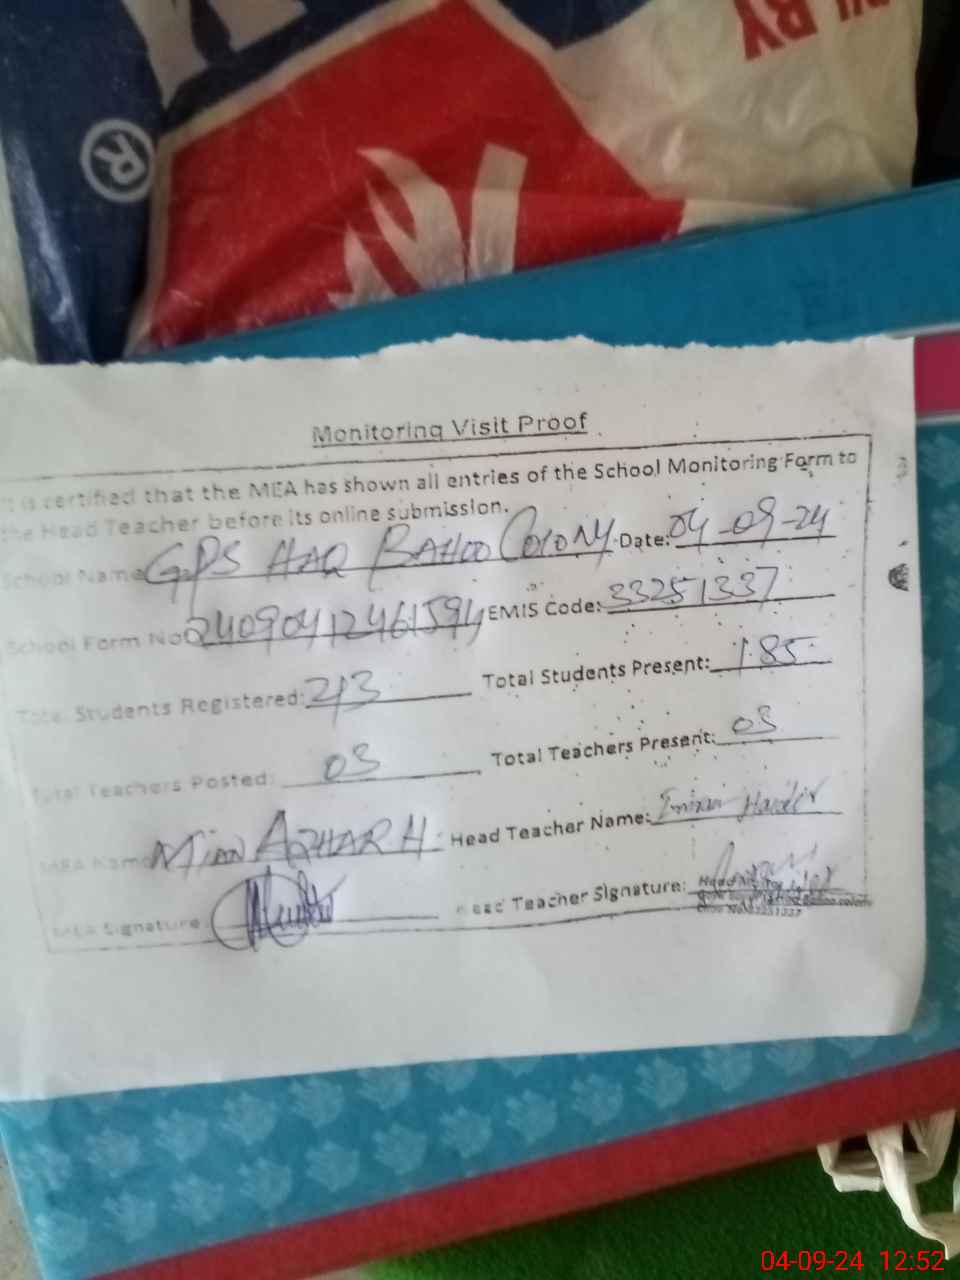 R
BY
Monitoring Visit Proof
It is certified that the MEA has shown all entries of the School Monitoring Form to
the Head Teacher before its online submission.
School Name GPS HAQ BAHOO COLONY Date: 04-09-24
School Form No 24090412461594 EMIS Code: 33251337
Total Students Registered: 213 Total Students Present: 185
Total Teachers Posted: 03 Total Teachers Present: 03
MEA Name MIAN AZHAR H. Head Teacher Name: Imran Haider
MEA Signature Head Teacher Signature:
04-09-24 12:52